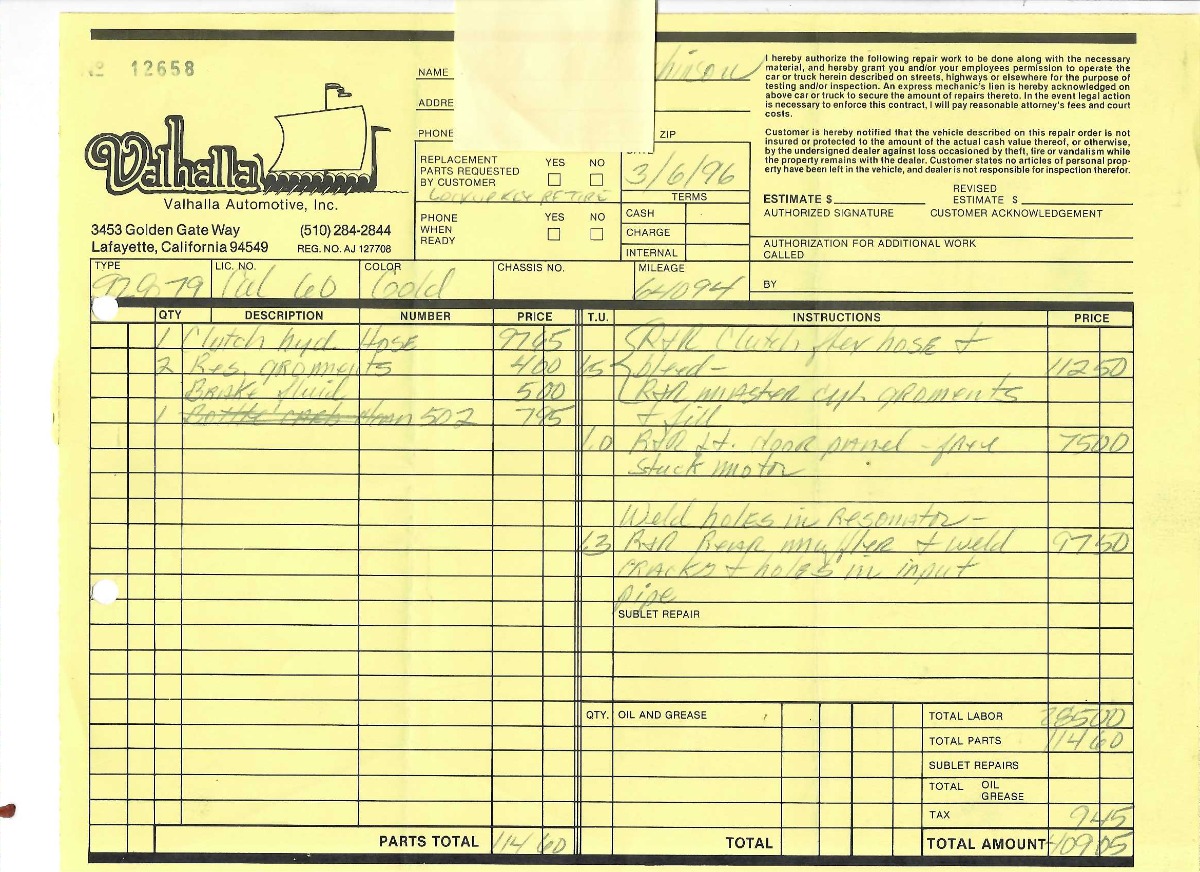 № 12658
Valhalla
Valhalla Automotive, Inc.
3453 Golden Gate Way (510) 284-2844
Lafayette, California 94549 REG. NO. AJ 127708
NAME
ADDRE
PHONE
ZIP
REPLACEMENT PARTS REQUESTED BY CUSTOMER YES NO
PHONE WHEN READY YES NO
3/6/96
TERMS
CASH
CHARGE
INTERNAL
I hereby authorize the following repair work to be done along with the necessary
material, and hereby grant you and/or your employees permission to operate the
car or truck herein described on streets, highways or elsewhere for the purpose of
testing and/or inspection. An express mechanic's lien is hereby acknowledged on
above car or truck to secure the amount of repairs thereto. In the event legal action
is necessary to enforce this contract, I will pay reasonable attorney's fees and court
costs.
Customer is hereby notified that the vehicle described on this repair order is not
insured or protected to the amount of the actual cash value thereof, or otherwise,
by the undersigned dealer against loss occasioned by theft, fire or vandalism while
the property remains with the dealer. Customer states no articles of personal prop-
erty have been left in the vehicle, and dealer is not responsible for inspection therefor.
ESTIMATE $ REVISED ESTIMATE $
AUTHORIZED SIGNATURE CUSTOMER ACKNOWLEDGEMENT
AUTHORIZATION FOR ADDITIONAL WORK
CALLED
BY
TYPE LIC. NO. COLOR CHASSIS NO. MILEAGE
928 79 Cal 60 Gold 64094
QTY DESCRIPTION NUMBER PRICE T.U. INSTRUCTIONS PRICE
1 Clutch hyd. Hose 9765
2 Res. groments 400
Brake fluid 500
1 502 795
R+R Clutch flex hose +
1.5 bleed- 11250
R+R master cyl. groments
+ fill
1.0 R+R Lt. door panel - free 7500
stuck motor
Weld holes in Resonator -
1.3 R+R Rear muffler + weld 9750
cracks + holes in input
pipe
SUBLET REPAIR
QTY. OIL AND GREASE
TOTAL LABOR 28500
TOTAL PARTS 11460
SUBLET REPAIRS
TOTAL OIL GREASE
TAX 945
PARTS TOTAL 11460 TOTAL TOTAL AMOUNT 40905